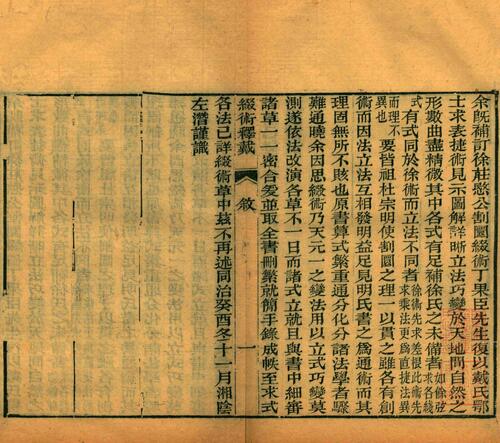 余旣補訂徐莊愍公割圜綴術丁果臣先生復以戴氏鄂
士求表捷術見示圖解詳晰立法巧變於天地間自然之
形數曲盡精微其中各式有足補徐氏之未備者如餘弦求各綫
式有式同於徐術而立法不同者徐術先求差根此術先求乘法更爲直捷法異
而理不異也要皆祖杜宗明使割圜之理一以貫之雖各有創
術而因法立法互相發明益足見明氏書之爲通術而其
理固無所不賅也原書算式繁重通分化分諸法學者驟
難通曉余因思綴術乃天元一之變法用以立式巧變莫
測遂依法改演各草不一日而諸式立就且與書中細審
諸草一一密合爰並取全書刪繁就簡手錄成帙至求式
綴術釋戴 敘 一
各法已詳綴術草中茲不再述同治癸酉冬十一月湘陰
左潛謹識